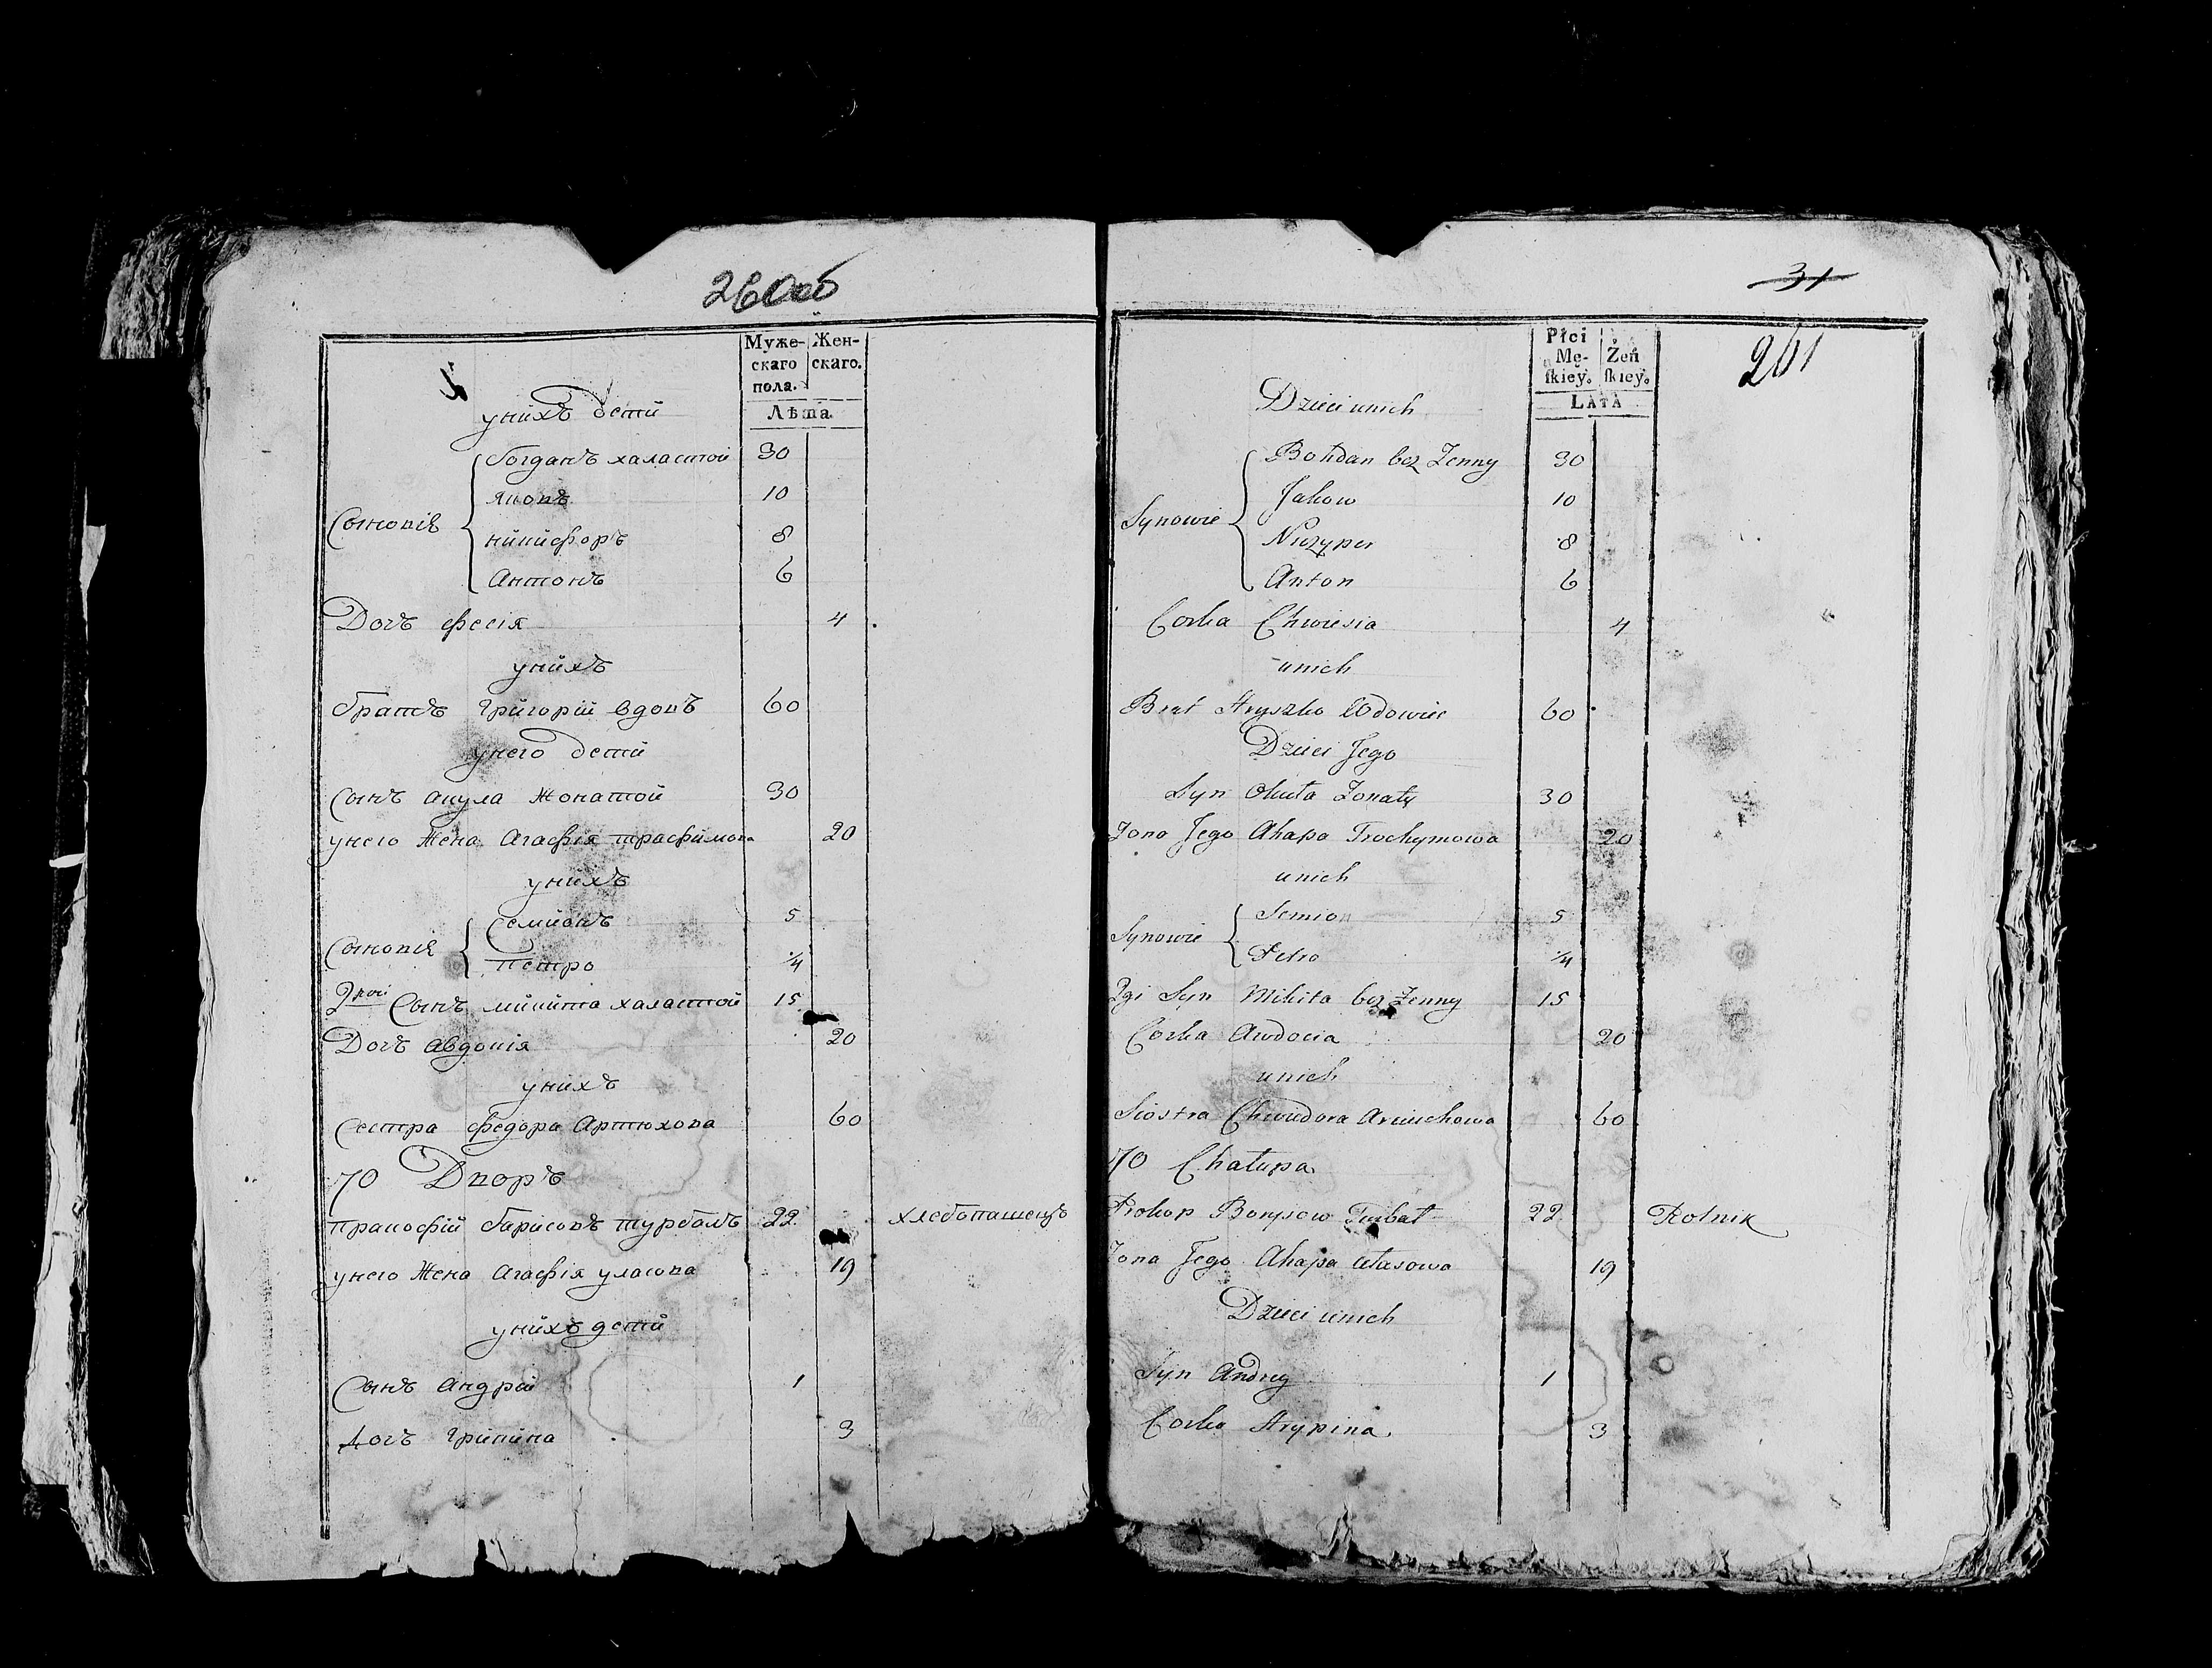 260об
Муже-
скаго
пола.
Жен-
скаго.
Лѣта.
унихъ дети
Богданъ халастой 30
яковъ 10
Сыновія
никифоръ 8
Антонъ 6
Дочь фесія 4
унихъ
братъ Григорій вдовъ 60
унего дети
Сынъ акула жонатой 30
унего жена Агафія трафимова 20
унихъ
Семионъ 5
Сыновія
петро 1/4
2гой Сынъ микита халастой 15
Дочь Авдокія 20
унихъ
Сестра федора Артюхова 60
70 Дворъ
пракофій барисовъ турбалъ 22 хлебопашецъ
унего жена Агафія уласова 19
унихъ дети
Сынъ Андрей 1
дочь Грипина 3
31
261
Płci
Mę-
skiey.
Żeń
skiey.
LATA
Dzieci unich
Bohdan bez Zenny 30
Jakow 10
Synowie
Niczypor 8
Anton 6
Corka Chwiesia 4
unich
Brat Hryszko Wdowiec 60
Dzieci Jego
Syn Okuła Zonaty 30
Zona Jego Ahapa Trochymowa 20
unich
Semion 5
Synowie
Petro 1/4
2gi Syn Mikita bez Zenny 15
Corka Awdocia 20
unich
Siostra Chwiedora Arciuchowa 60
70 Chałupa
Prokop Borysow Turbał 22 Rolnik
Zona Jego Ahapa Ułasowa 19
Dzieci unich
Syn Andrey 1
Corka Hrypina 3